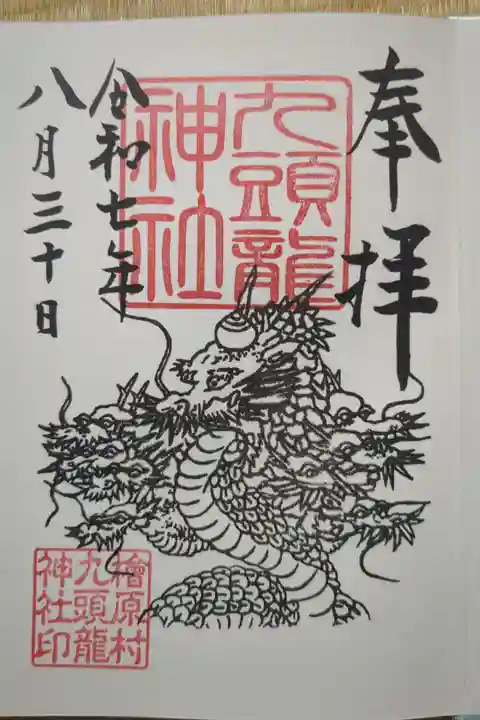 奉拝
九頭龍
神社
令和七年
八月三十日
檜原村
九頭龍
神社印